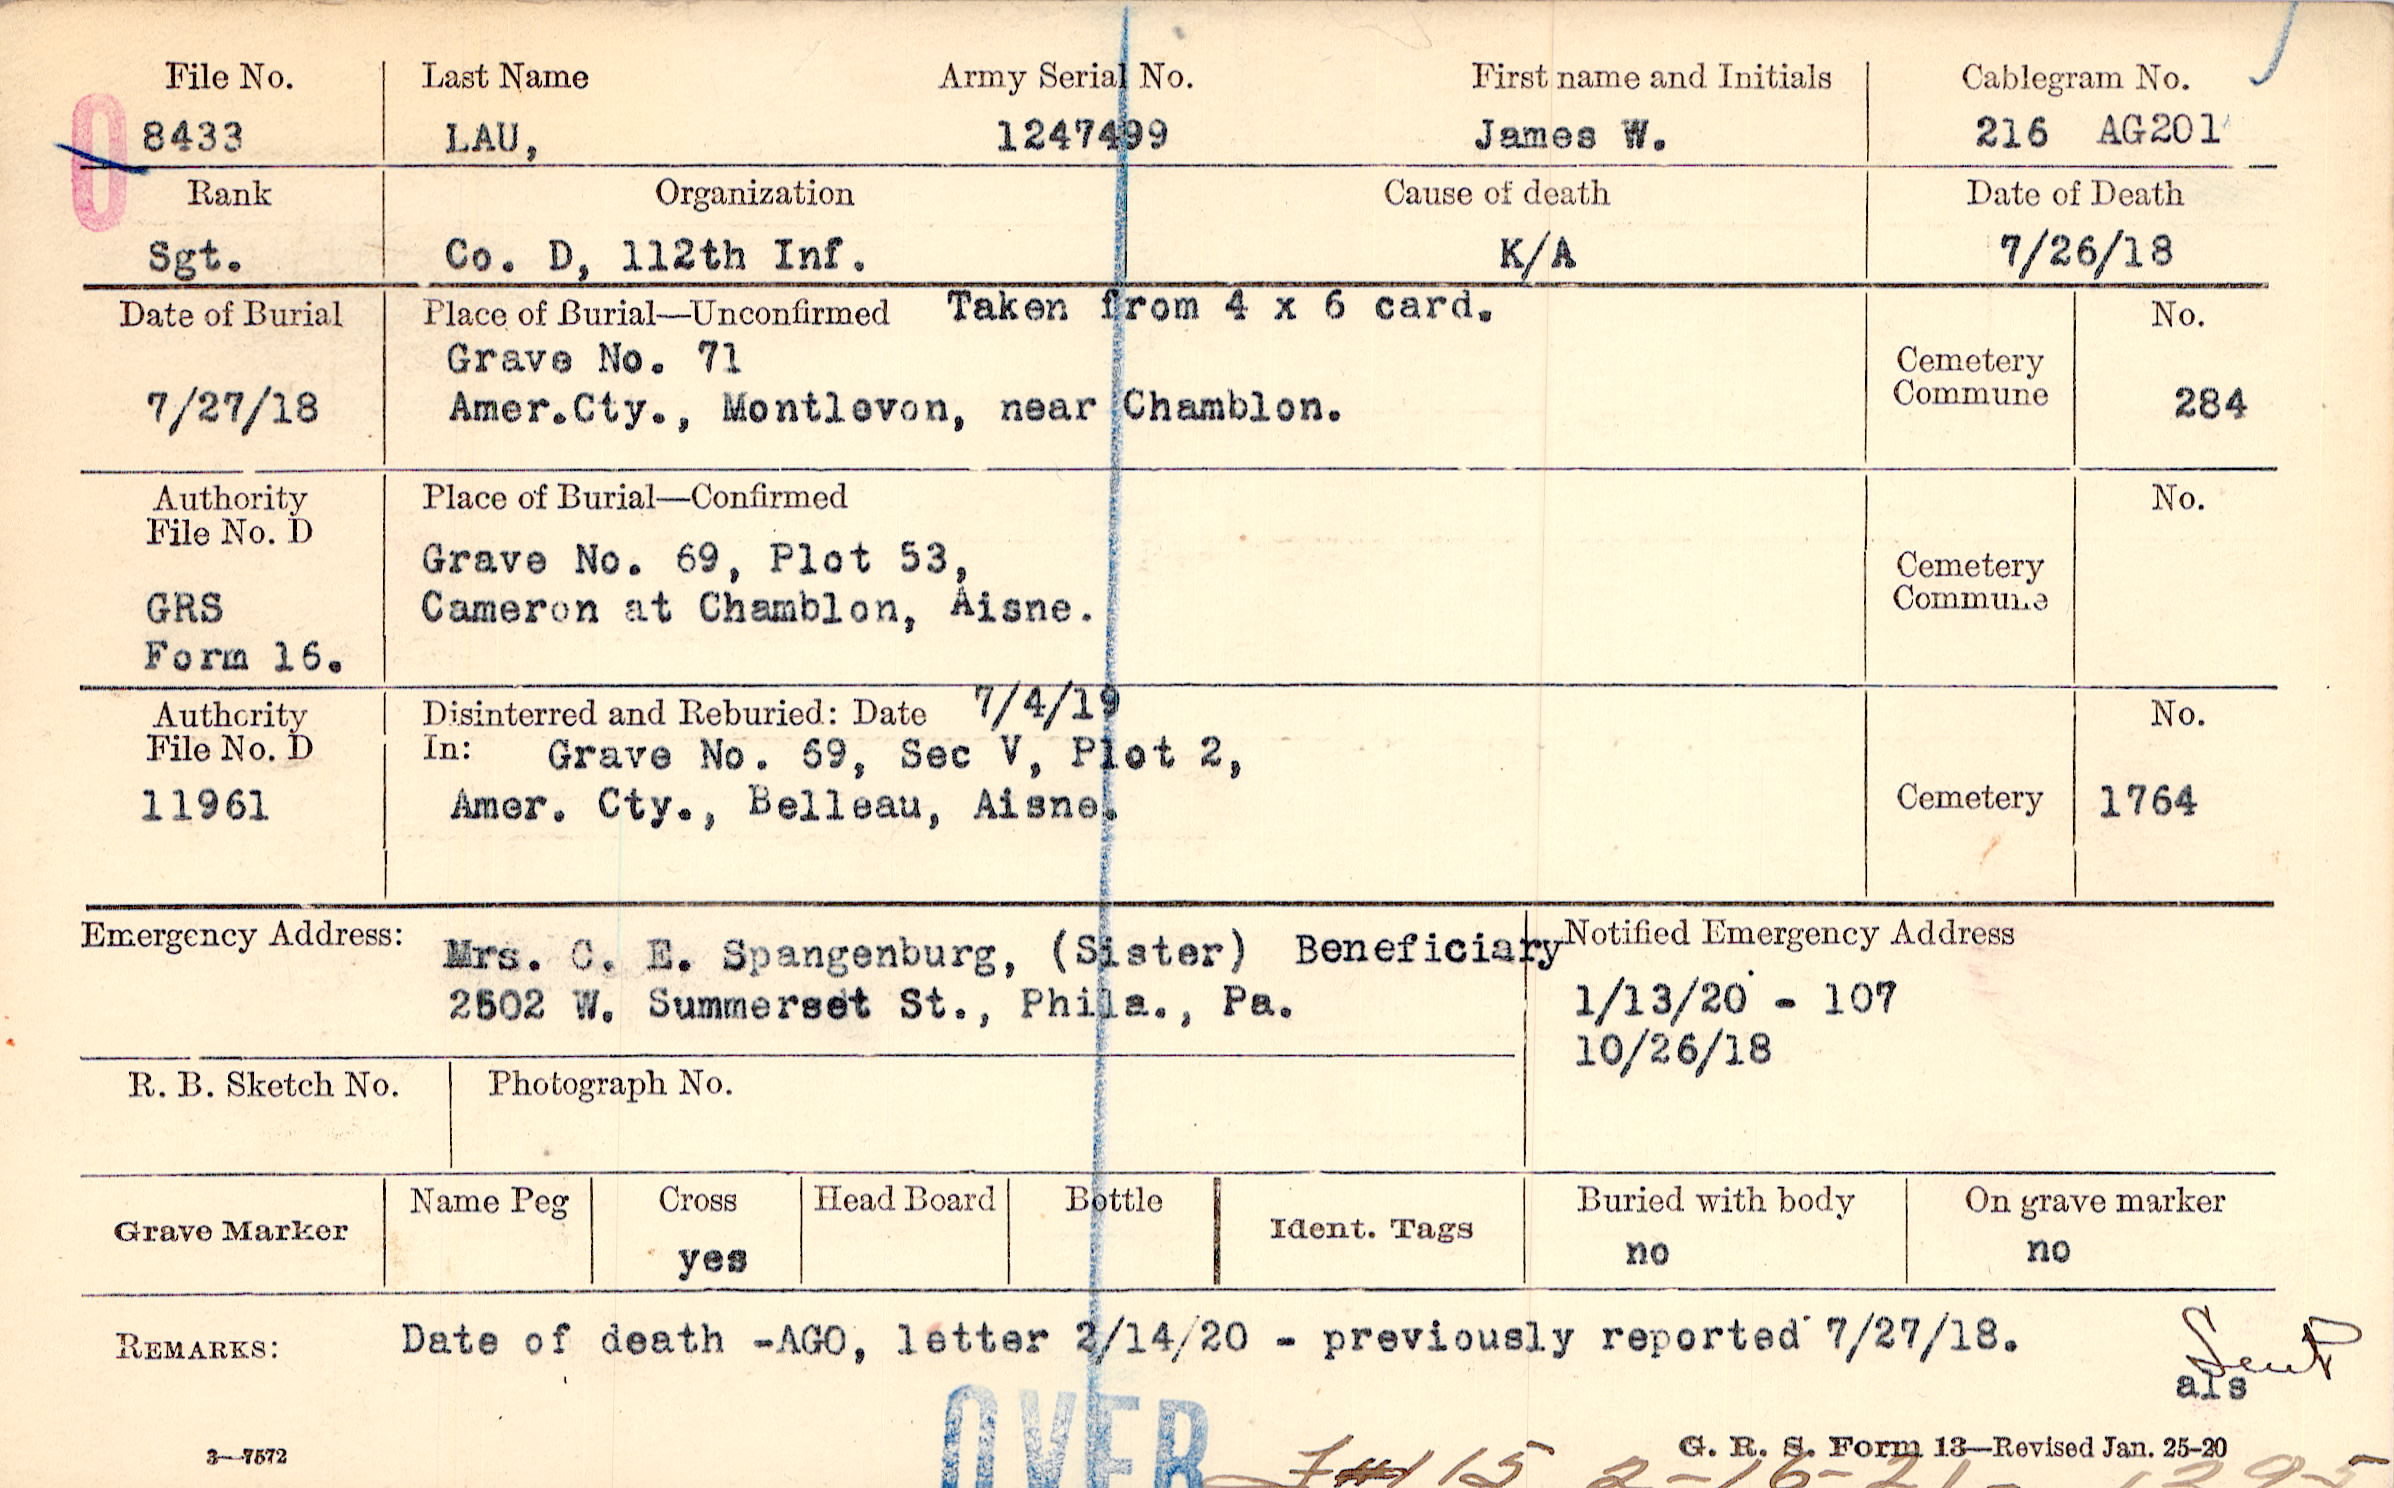 File No. Last Name Army Serial No. First name and Initials Cablegram No.
8433 LAU, 1247499 James W. 216 AG201
Rank Organization Cause of death Date of Death
Sgt. Co. D, 112th Inf. K/A 7/26/18
Date of Burial Place of Burial—Unconfirmed Taken from 4 x 6 card. No.
Grave No. 71
Cemetery
Commune
7/27/18 Amer.Cty., Montlevon, near Chamblon. 284
Authority Place of Burial—Confirmed No.
File No. D
Grave No. 69, Plot 53,
Cemetery
Commune
GRS Cameron at Chamblon, Aisne.
Form 16.
Authority Disinterred and Reburied: Date 7/4/19 No.
File No. D In: Grave No. 69, Sec V, Plot 2,
11961 Amer. Cty., Belleau, Aisne. Cemetery 1764
Emergency Address: Mrs. C. E. Spangenburg, (Sister) Beneficiary Notified Emergency Address
2502 W. Summerset St., Phila., Pa. 1/13/20 - 107
10/26/18
R. B. Sketch No. Photograph No.
Grave Marker Name Peg Cross Head Board Bottle Ident. Tags Buried with body On grave marker
yes no no
REMARKS: Date of death -AGO, letter 2/14/20 - previously reported 7/27/18.
Sent
als
OVER
3—7572 G. R. S. Form 13—Revised Jan. 25-20